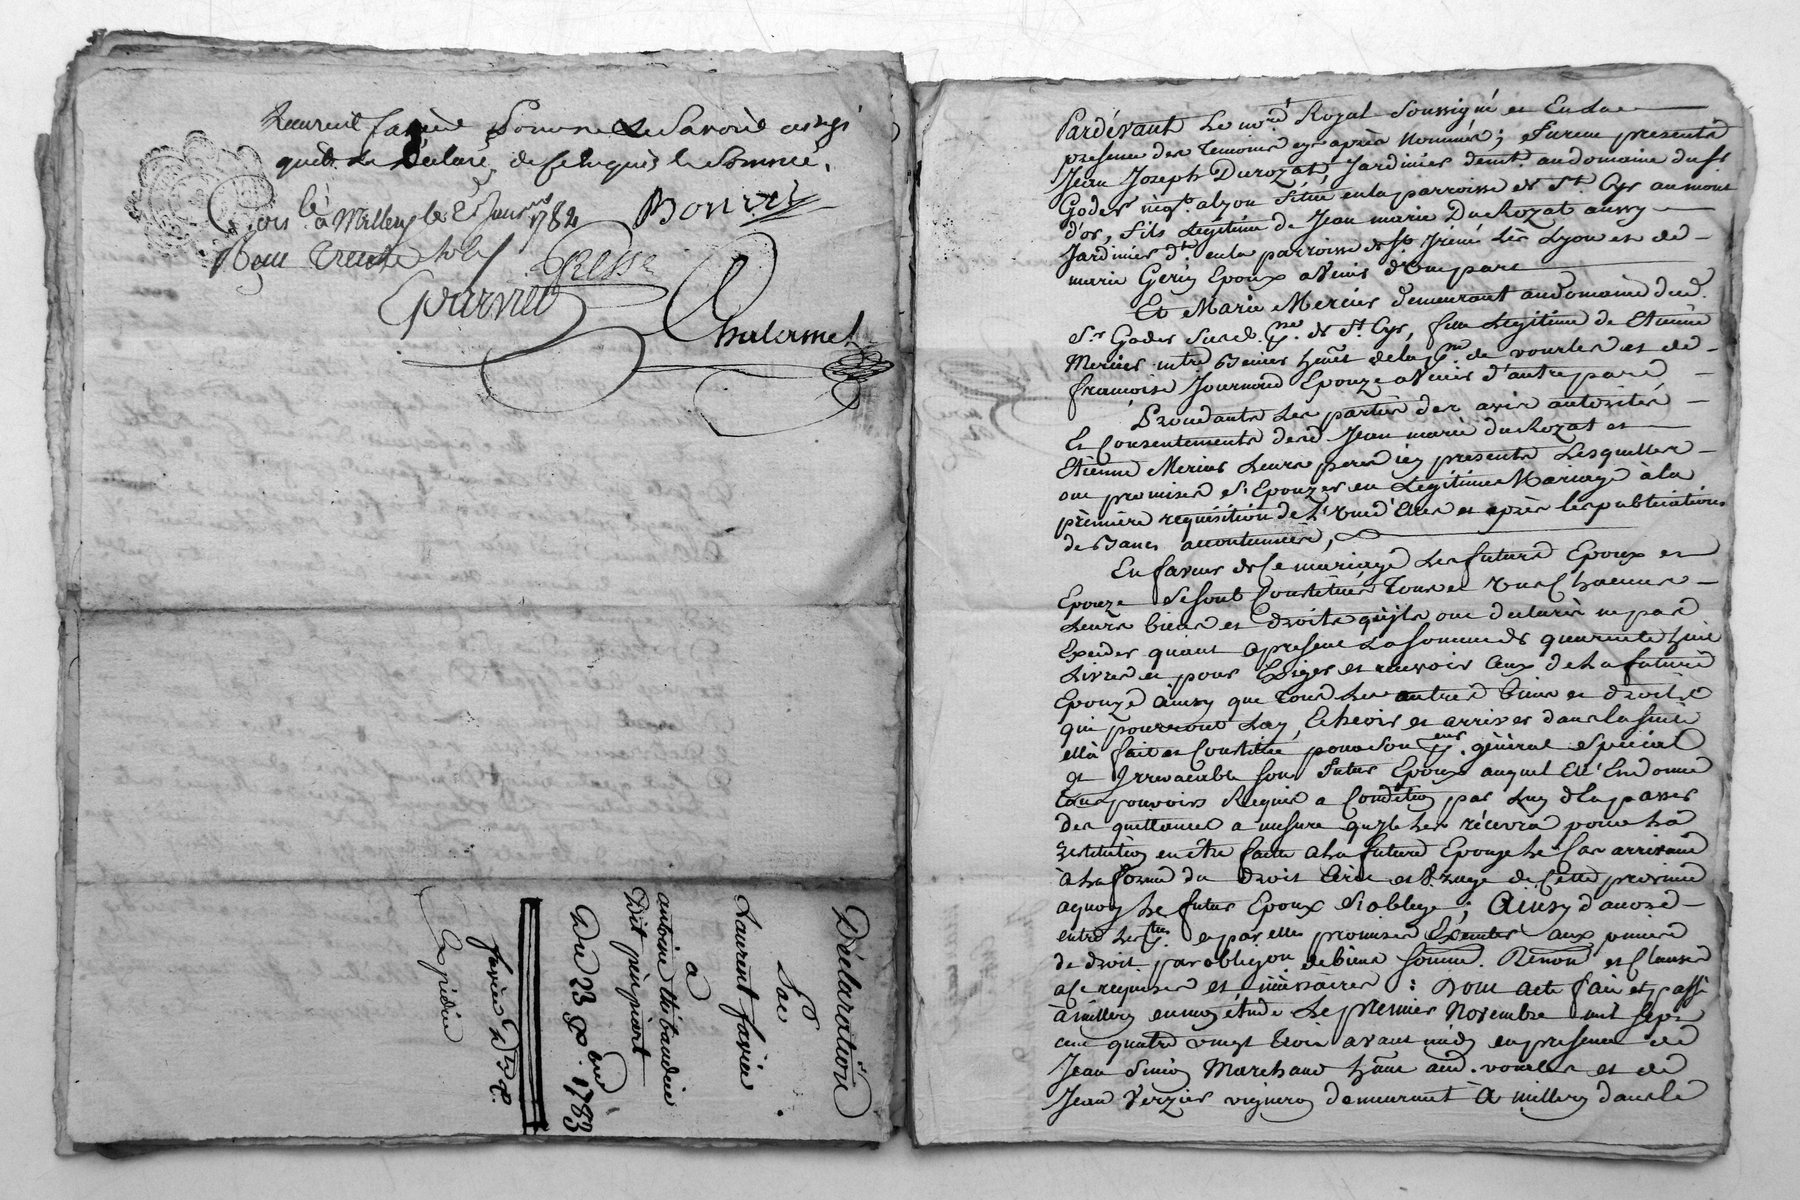 Laurent favier
quit de declaré, de ce Requis le Sommé.
à Millery le 1784
Bonnet
Reçu trente sols
Déclaration
Par
Laurent favier
à
antoine thibaudier
Dit
Du 23 8bre 1783
Expédiée
Pardevant Le no.re Royal Soussigné et En La
presence des Temoins cy après Nommés; furent presents
Jean Joseph Durozat, Jardinier demt. au domaine du Sr
Godes neg.t a Lyon Situé en la parroisse de St Cyr au mont
d'or, fils Légitime de Jean marie DuRozat aussy
Jardinier dt. en la parroisse de St. Irenée Lès Lyon et de
marie Époux a Venir d'une part
Et Marie Mercier demeurant au domaine dud.
Sr Godes Sur de St Cyr, fille Legitime de Etienne
Mercier de vourles et de
françoise Journoud Epouze a Venir d'autre part
Procedants Les parties des avis autorités
Et Consentements desd. Jean marie duRozat et
Etienne Mercier Leurs peres icy presents Lesquelles
ont promises s'Epouzer en Legitime Mariage à la
première requisition de L'une d'Elles et après les publications
de Bancs accoutumées,
En faveur de Ce mariage Les futurs Epoux et
Epouze se sont Constitués Tous et uns Chacuns
Leurs biens et droits qu'ils ont declarés ne pas
Exceder quant a present La somme de quarante huit
Livres et pour Exiger et recevoir Ceux de La future
Epouze ainsy que tous Les autres biens et droits
qui pourront Luy Echeoir et arriver dans la suite
elle fait et Constitue pour son général Special
et Irrevocable son futur Epoux auquel Elle Endonne
tous pouvoirs Requis a Condition par Luy de passer
des quittances a mesure qu'il Les recevra pour La
restitution en être faite a La future Epouze Le Cas arrivant
à La forme du droit Ecrit et Usage de Cette province
aquoy Le futur Epoux s'oblige; Ainsy d'accord
entre Les et par elles promises Executer aux peines
de droit. par obligon. de biens Soumis. Renon. et Clauses
a Ce requises et nécessaires: Dont acte fait et passé
à millery en mon étude Le premier Novembre mil sept
cent quatre vingt trois avant midy en presence de
Jean Simon Marchand aud. vourles et de
Jean Verzier vigneron demeurant à millery dans le